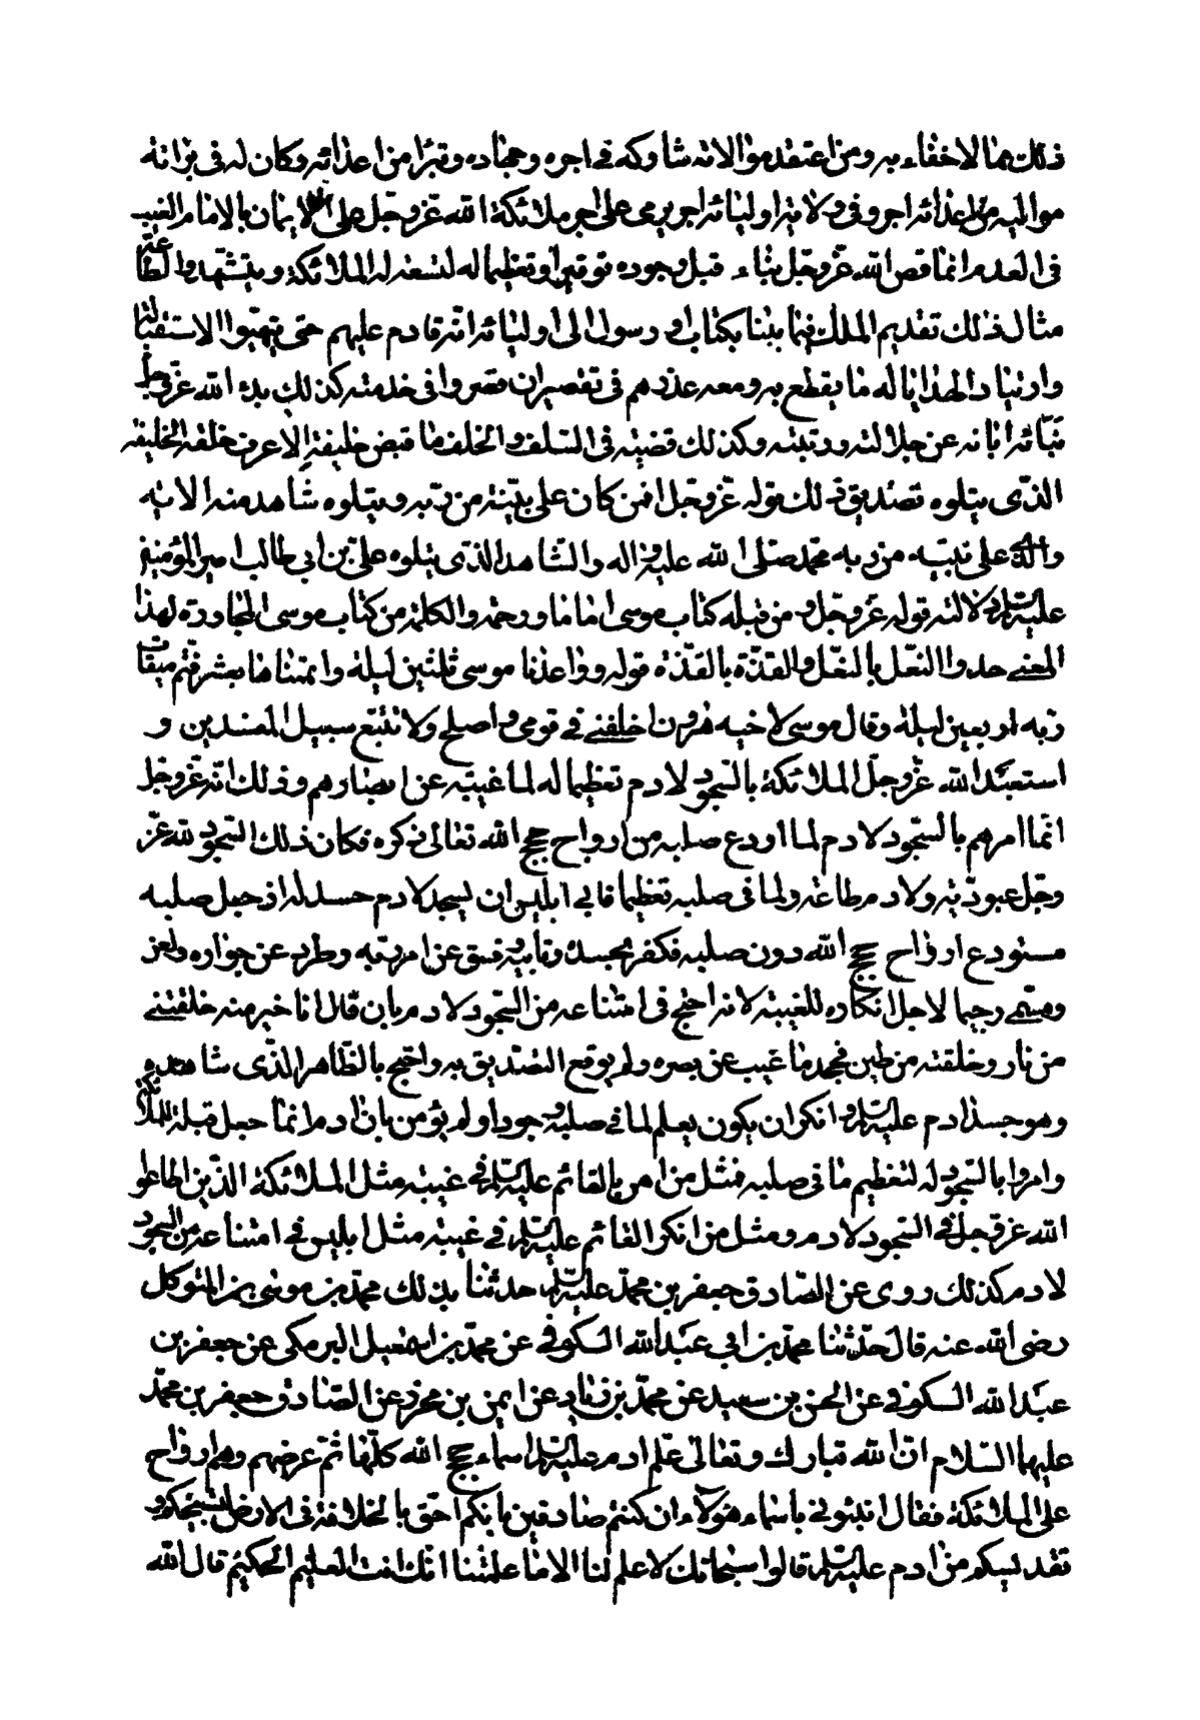 ذلك مما لا خفاء به ومن اعتقد موالاته شاركه في اجره وجهاده وتبرأ من اعدائه وكان له في براءة
مواليه من اعدائه اجر وفي ولايته اوليائه اجر يربى على اجر ملائكة الله عزوجل على الايمان بالامام المغيب
في العدم وانما قص الله عزوجل نباءه قبل وجوده توقيرا وتعظيما له لتستعد له الملائكة ويتشمروا لطاعته
مثال ذلك تقديم الملك فيما بيننا بكتاب او رسول الى اوليائه انه قادم عليهم حتى يتهيوا لاستقباله
وارتياد الهدايا له ما يقطع به ومعه عذرهم في تقصير ان قصروا في خدمته كذلك بدء الله عزوجل
بنبائه ابانه عن جلالته ورتبته وكذلك قضيته في السلف والخلف فما قبض خليفة الا عرف خلقه الخليفه
الذى يتلوه تصديق ذلك قوله عزوجل افمن كان على بينة من ربه ويتلوه شاهد منه الايه
والذى على بينه من ربه محمد صلى الله عليه واله والشاهد الذى يتلوه على بن ابي طالب امير المؤمنين
عليه السلام دلالته قوله عزوجل ومن قبله كتاب موسى اماما ورحمة والكلمة من كتاب موسى المجاورة لهذا
المعنى حذو النعل بالنعل والقذة بالقذة قوله وواعدنا موسى ثلثين ليلة واتممناها بعشر فتم ميقات
ربه اربعين ليلة وقال موسى لاخيه هرون اخلفني في قومي واصلح ولا تتبع سبيل المفسدين و
استعبد الله عزوجل الملائكة بالسجود لادم تعظيما له لما غيبه عن ابصارهم وذلك انه عزوجل
انما امرهم بالسجود لادم لما اودع صلبه من ارواح حجج الله تعالى ذكره فكان ذلك السجود لله عز
وجل عبودية ولادم طاعة ولما في صلبه تعظيما فابى ابليس ان يسجد لادم حسدا له اذ جعل صلبه
مستودع ارواح حجج الله دون صلبه فكفر بحسده وتابيه وفسق عن امر ربه وطرد عن جواره ولعن
وسمى رجيما لاجل انكاره للغيبة لانه احتج في امتناعه من السجود لادم بان قال انا خير منه خلقتني
من نار وخلقته من طين فجحد ما غيب عن بصره ولم يوقع التصديق به واحتج بالظاهر الذى شاهده
وهو جسد ادم عليه السلام وانكر ان يكون يعلم لما في صلبه وجودا ولم يؤمن بان ادم انما جعل قبلة للملائكة
وامروا بالسجود له لتعظيم ما في صلبه فمثل من امن بالقائم عليه السلام في غيبته مثل الملائكة الذين اطاعوا
الله عزوجل في السجود لادم ومثل من انكر القائم عليه السلام في غيبته مثل ابليس في امتناعه من السجود
لادم كذلك روى عن الصادق جعفر بن محمد عليه السلام حدثنا بذلك محمد بن موسى بن المتوكل
رضى الله عنه قال حدثنا محمد بن ابي عبد الله الكوفي عن محمد بن اسمعيل البرمكى عن جعفر بن
عبد الله الكوفي عن الحسن بن سعيد عن محمد بن زياد عن ايمن بن محرز عن الصادق جعفر بن محمد
عليهما السلام ان الله تبارك وتعالى علم ادم عليه السلام اسماء حجج الله كلها ثم عرضهم وهم ارواح
على الملائكة فقال انبئوني باسماء هؤلاء ان كنتم صادقين بانكم احق بالخلافة في الارض لتسبيحكم و
تقديسكم من ادم عليه السلام قالوا سبحانك لا علم لنا الا ما علمتنا انك انت العليم الحكيم قال الله